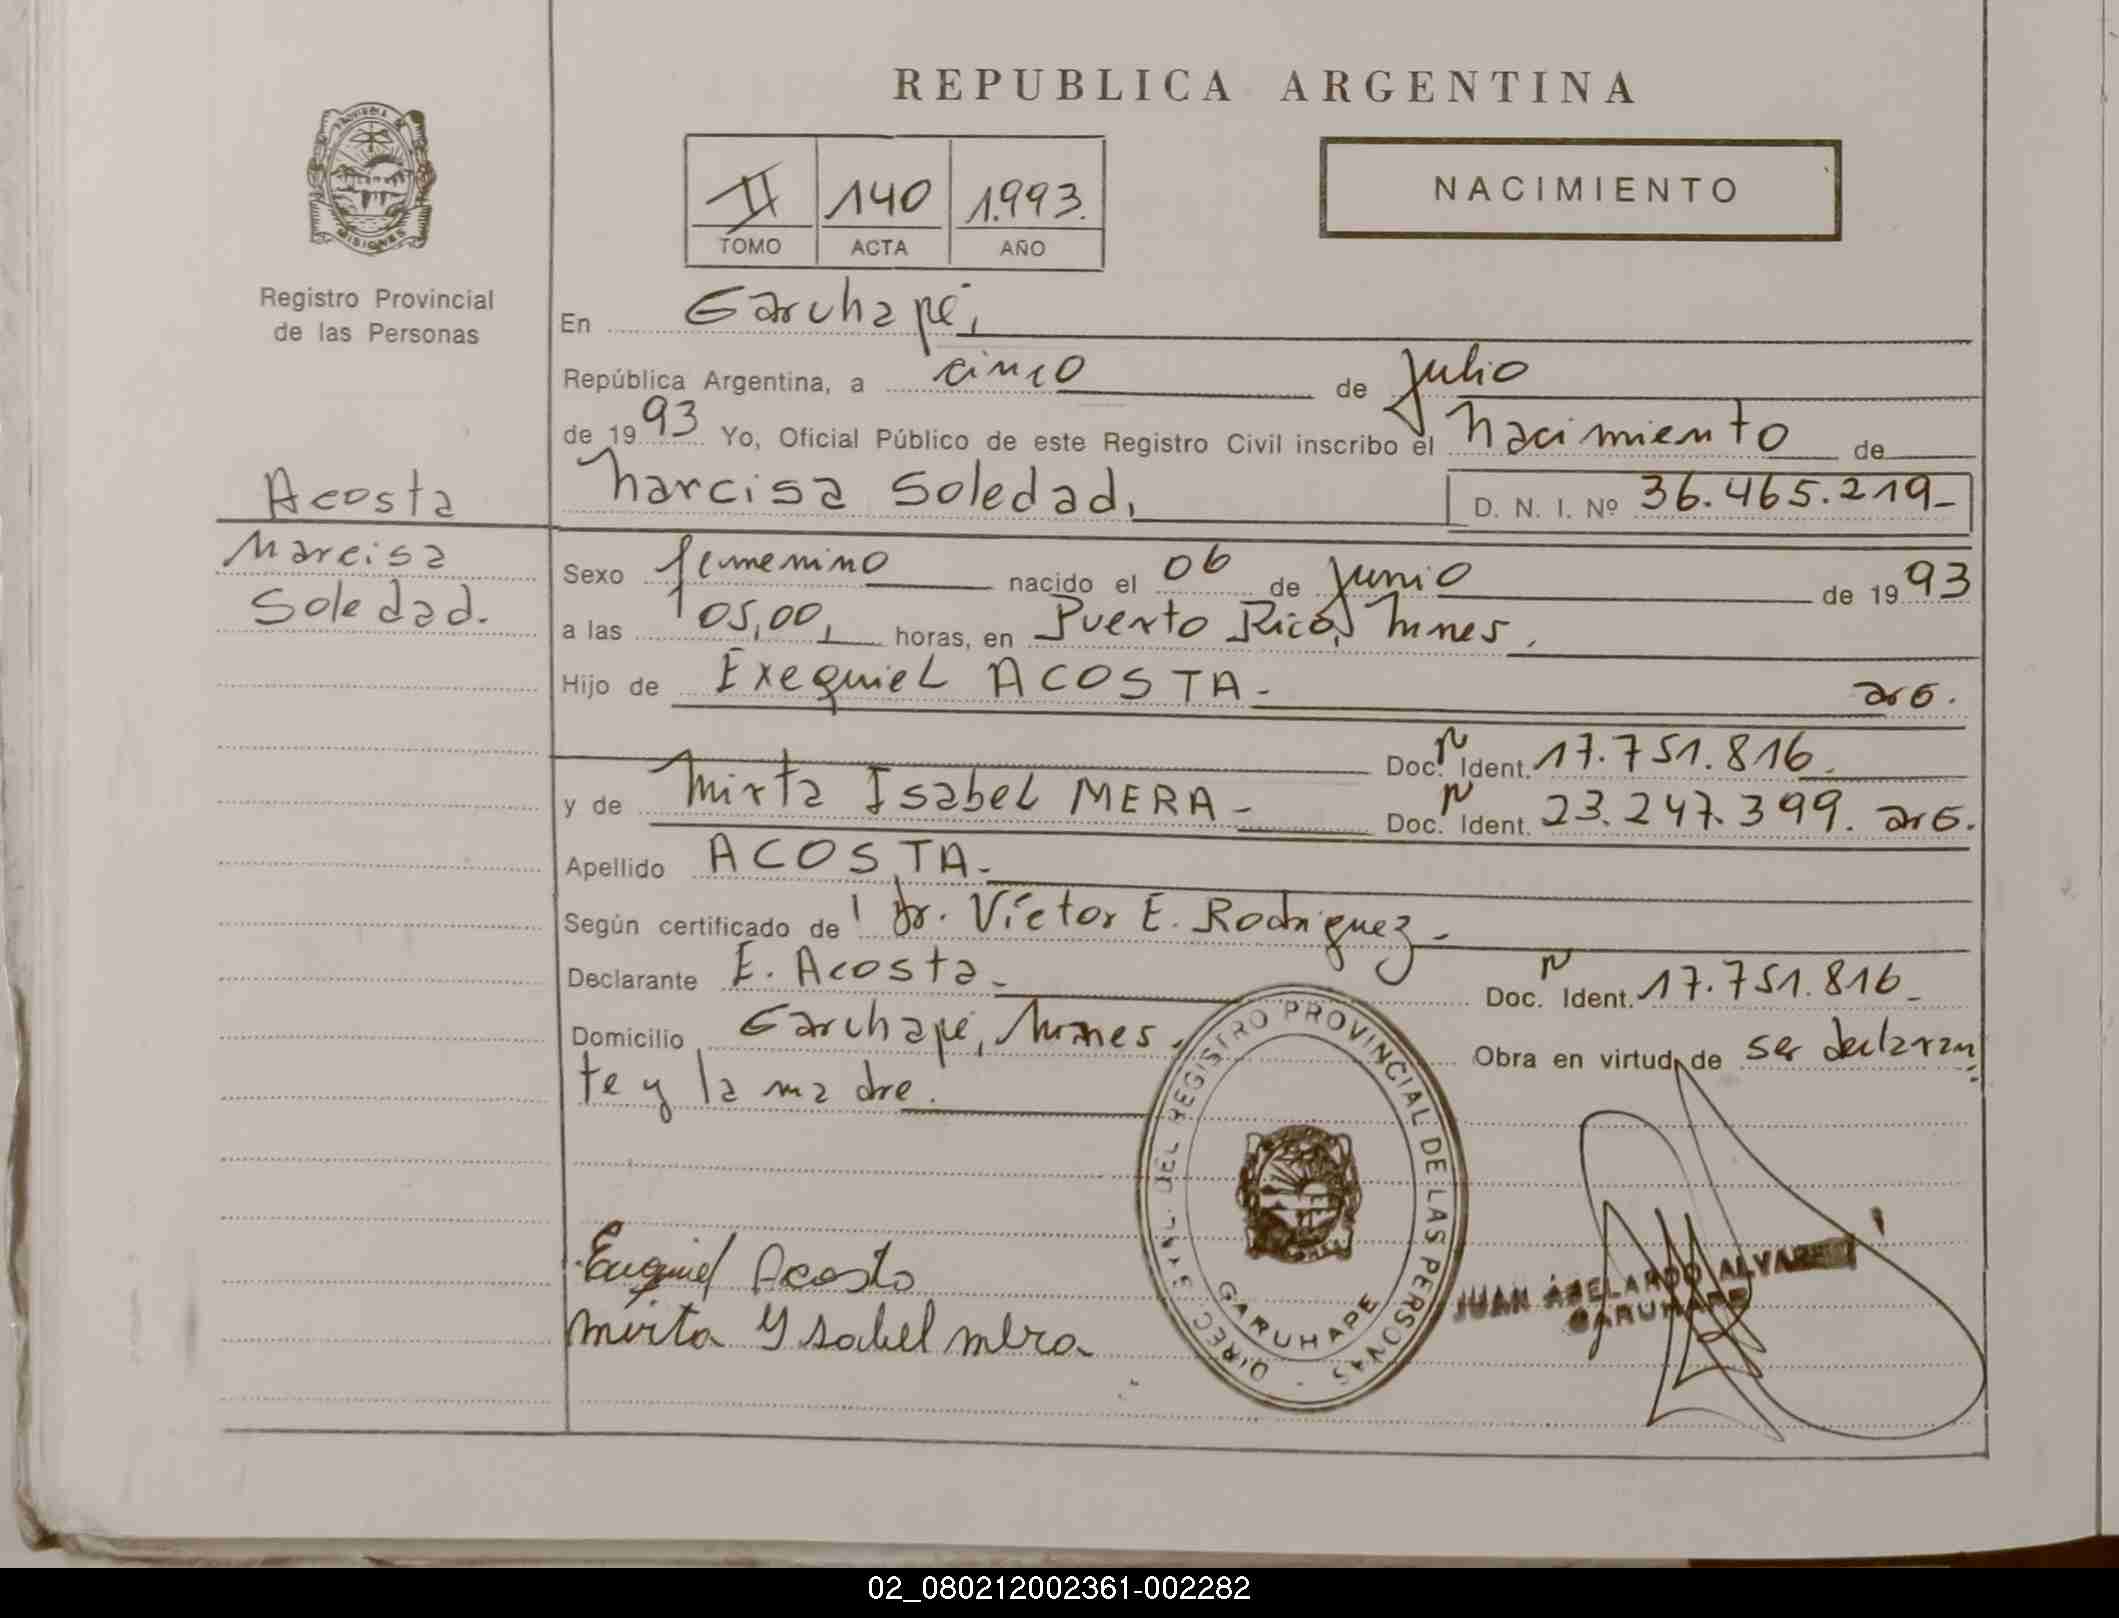 REPUBLICA ARGENTINA
PROVINCIA DE MISIONES
Registro Provincial
de las Personas
II 140 1.993.
TOMO ACTA AÑO
NACIMIENTO
En Garuhapé,
República Argentina, a cinco de Julio
de 1993 Yo, Oficial Público de este Registro Civil inscribo el Nacimiento de
Acosta
Narcisa Soledad, D. N. I. Nº 36.465.219-
Narcisa
Soledad.
Sexo femenino nacido el 06 de Junio de 1993
a las 05,00, horas, en Puerto Rico, Mnes.
Hijo de Exequiel ACOSTA- arg.
Doc. N Ident. 17.751.816.
y de Mirta Isabel MERA- Doc. N Ident. 23.247.399. arg.
Apellido ACOSTA-
Según certificado de Dr. Víctor E. Rodriguez-
Declarante E. Acosta- Doc. N Ident. 17.751.816-
Domicilio Garuhapé, Mnes. Obra en virtud de ser declaran
te y la madre.
DIREC. GRAL. DEL REGISTRO PROVINCIAL DE LAS PERSONAS -
GARUHAPE
Exequiel Acosta
Mirta Ysabel Mera
JUAN ABELARDO ALVAREZ
GARUHAPE
02_080212002361-002282